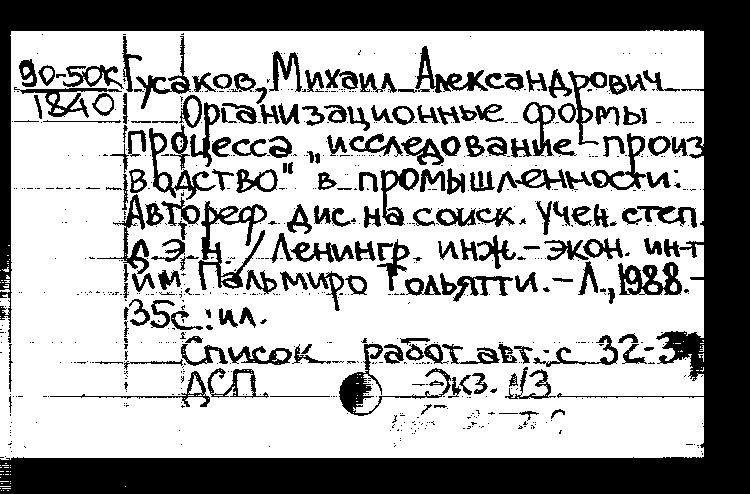 90-50к Гусаков, Михаил Александрович
1840
Организационные формы
процесса „исследование-произ
водство" в промышленности:
Автореф. дис. на соиск. учен. степ.
д.э.н. / Ленингр. инж.-экон. ин-т
им. Пальмиро Тольятти. – Л., 1988. –
35с.: ил.
Список работ авт.: с 32-
ДСП. Экз.